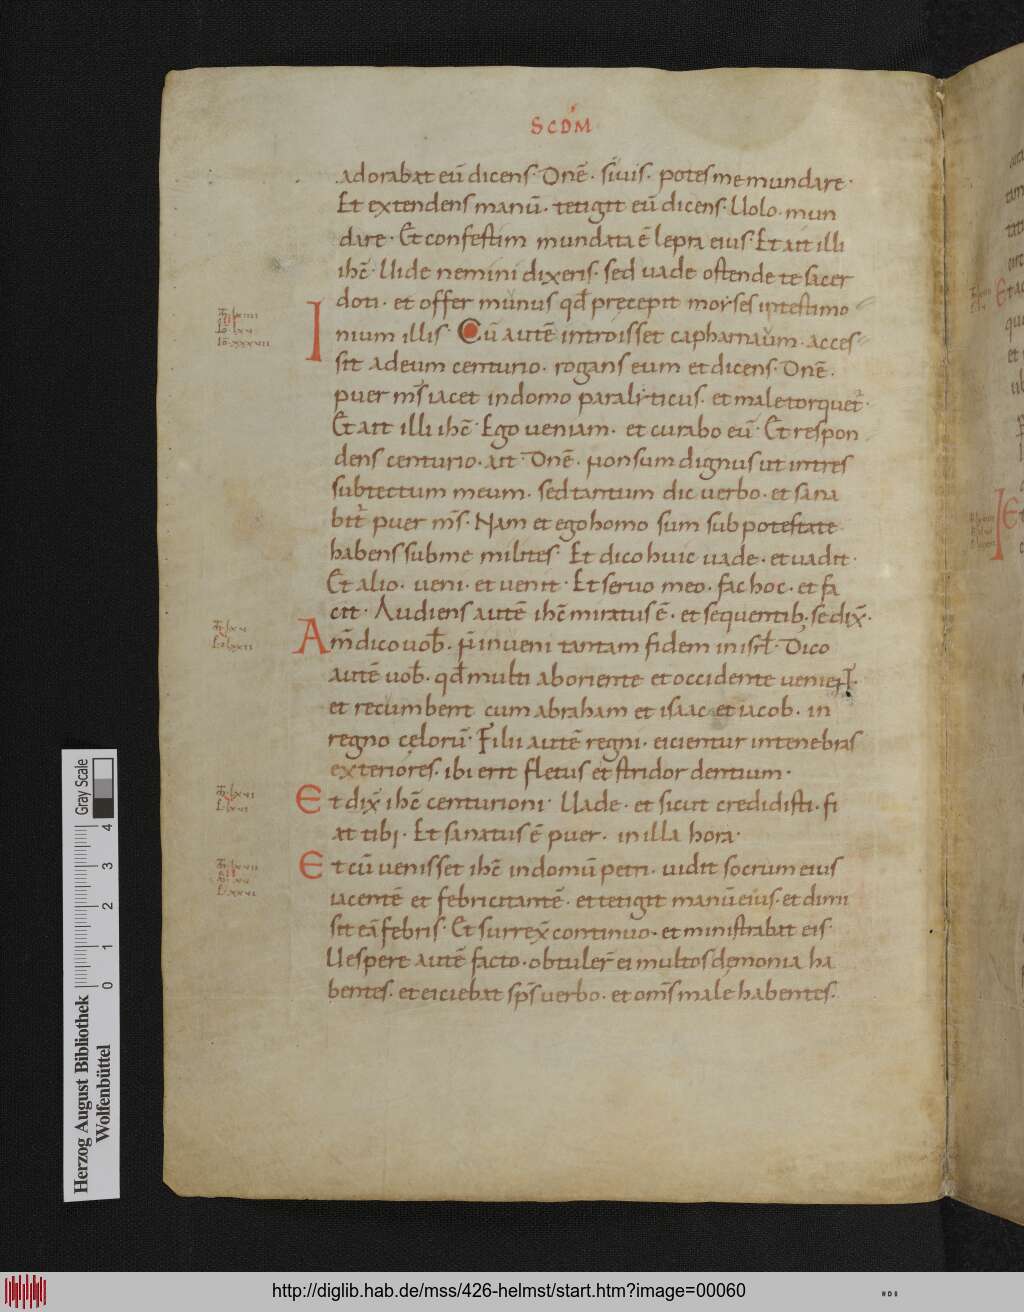 SCDM
adorabat eū dicens· Dnē· si uis· potes me mundare·
Et extendens manū· tetigit eū dicens· Uolo· mun
dare· Et confestim mundata ē lepra eius· Et ait illi
ihc̄· Uide nemini dixeris· sed uade ostende te sacer
doti· et offer munus qd̄ precepit moyses in testimo
nium illis· Cū autē introisset capharnaum· acces
sit ad eum centurio· rogans eum et dicens· Dnē·
puer ms̄ iacet in domo paralyticus· et male torquet̄·
Et ait illi ihc̄· Ego ueniam· et curabo eū· Et respon
dens centurio· ait· Dnē· non sum dignus ut intres
sub tectum meum· sed tantum dic uerbo· et sana
bit̄ puer ms̄· Nam et ego homo sum sub potestate
habens sub me milites· Et dico huic uade· et uadit·
Et alio· ueni· et uenit· Et seruo meo· fac hoc· et fa
cit· Audiens autē ihc̄ miratus ē· et sequentib; se dix̄·
Am̄ dico uob̄· n̄ inueni tantam fidem in isrl̄· Dico
autē uob̄· qd̄ multi ab oriente et occidente uenient·
et recumbent cum abraham et isaac et iacob· in
regno cęlorū· Filii autē regni· eicientur in tenebras
exteriores· ibi erit fletus et stridor dentium·
Et dix̄ ihc̄ centurioni· Uade· et sicut credidisti· fi
at tibi· Et sanatus ē puer· in illa hora·
Et cū uenisset ihc̄ in domū petri· uidit socrum eius
iacentē et febricitantē· et tetigit manū eius· et dimi
sit eā febris· Et surrex̄ continuo· et ministrabat eis·
Uespere autē facto· obtuler̄ ei multos dęmonia ha
bentes· et eiciebat sps̄ uerbo· et oms̄ male habentes·
Gray Scale
0 1 2 3 4
Herzog August Bibliothek
Wolfenbüttel
http://diglib.hab.de/mss/426-helmst/start.htm?image=00060